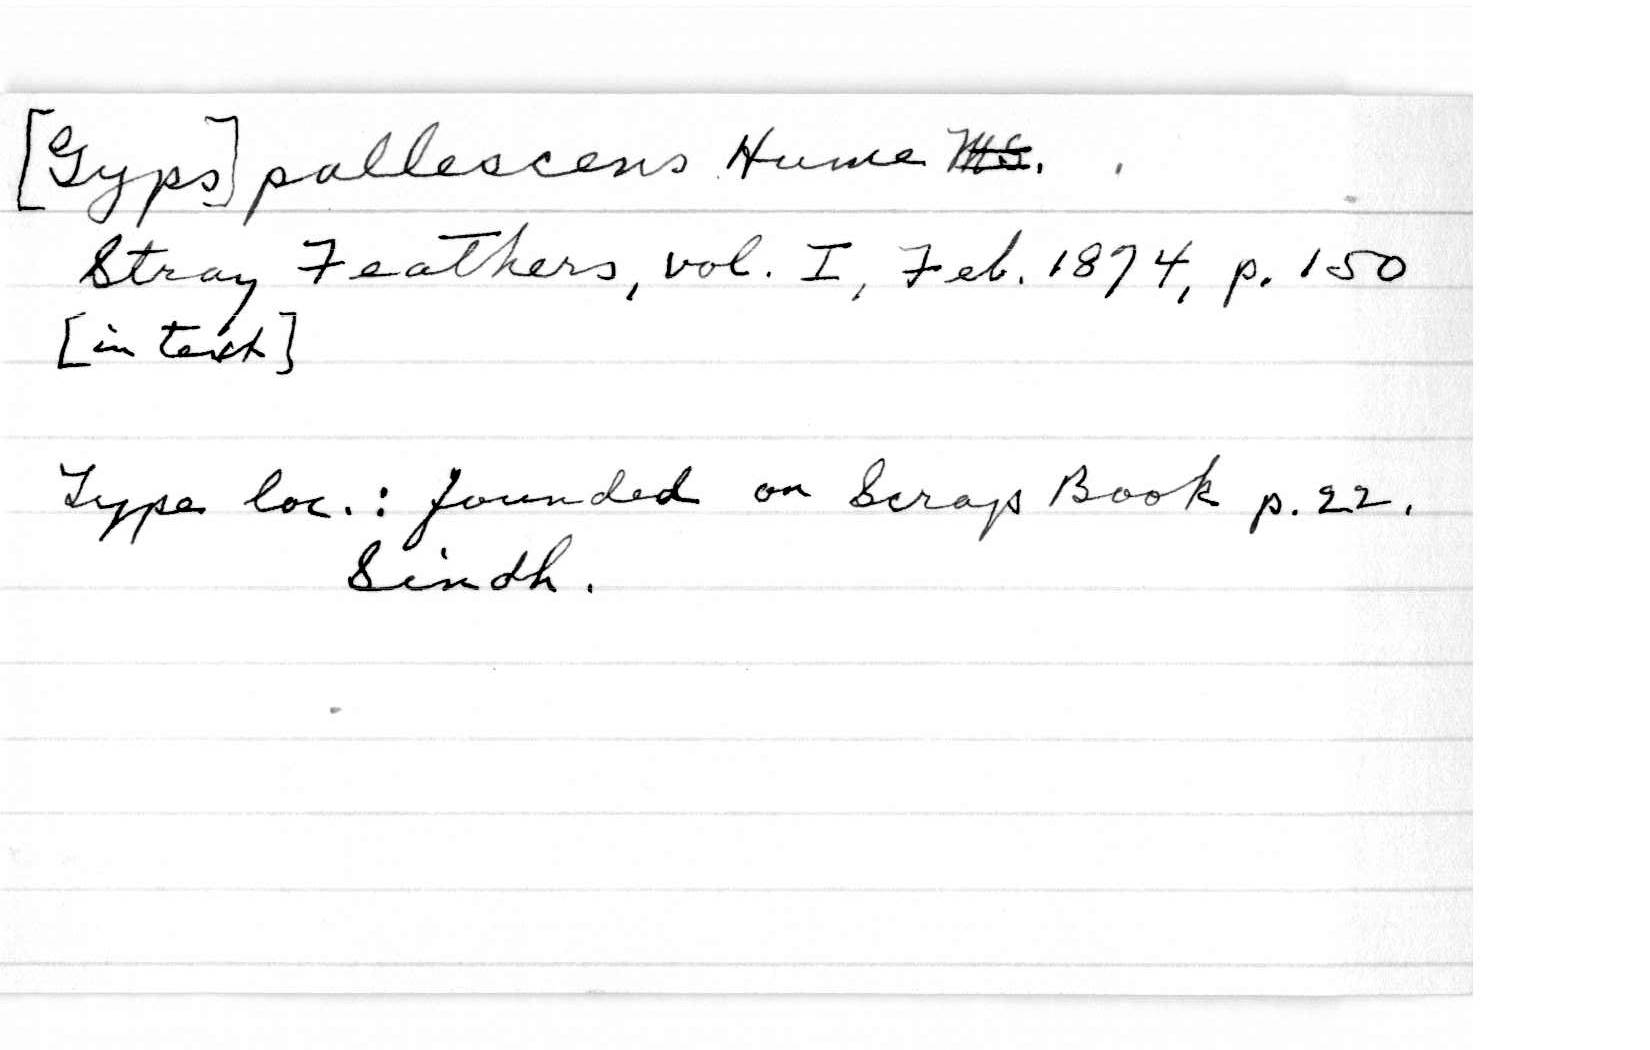 [Gyps] pallescens Hume MS.
Stray Feathers, vol. I, Feb. 1874, p. 150
[in text]
Type loc.: founded on Scrap Book p. 22.
Sindh.